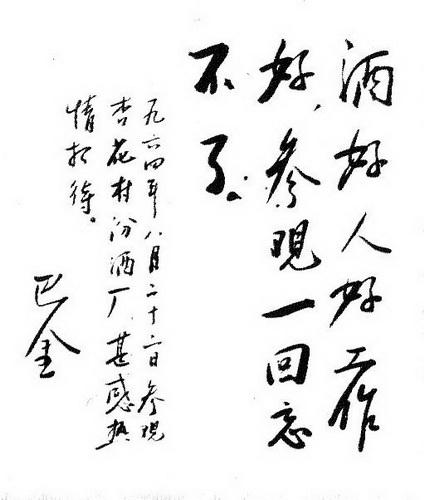 酒好人好工作
好,参观一回忘
不了。
一九六四年八月二十二日参观
杏花村汾酒厂,甚感热
情招待。
巴金